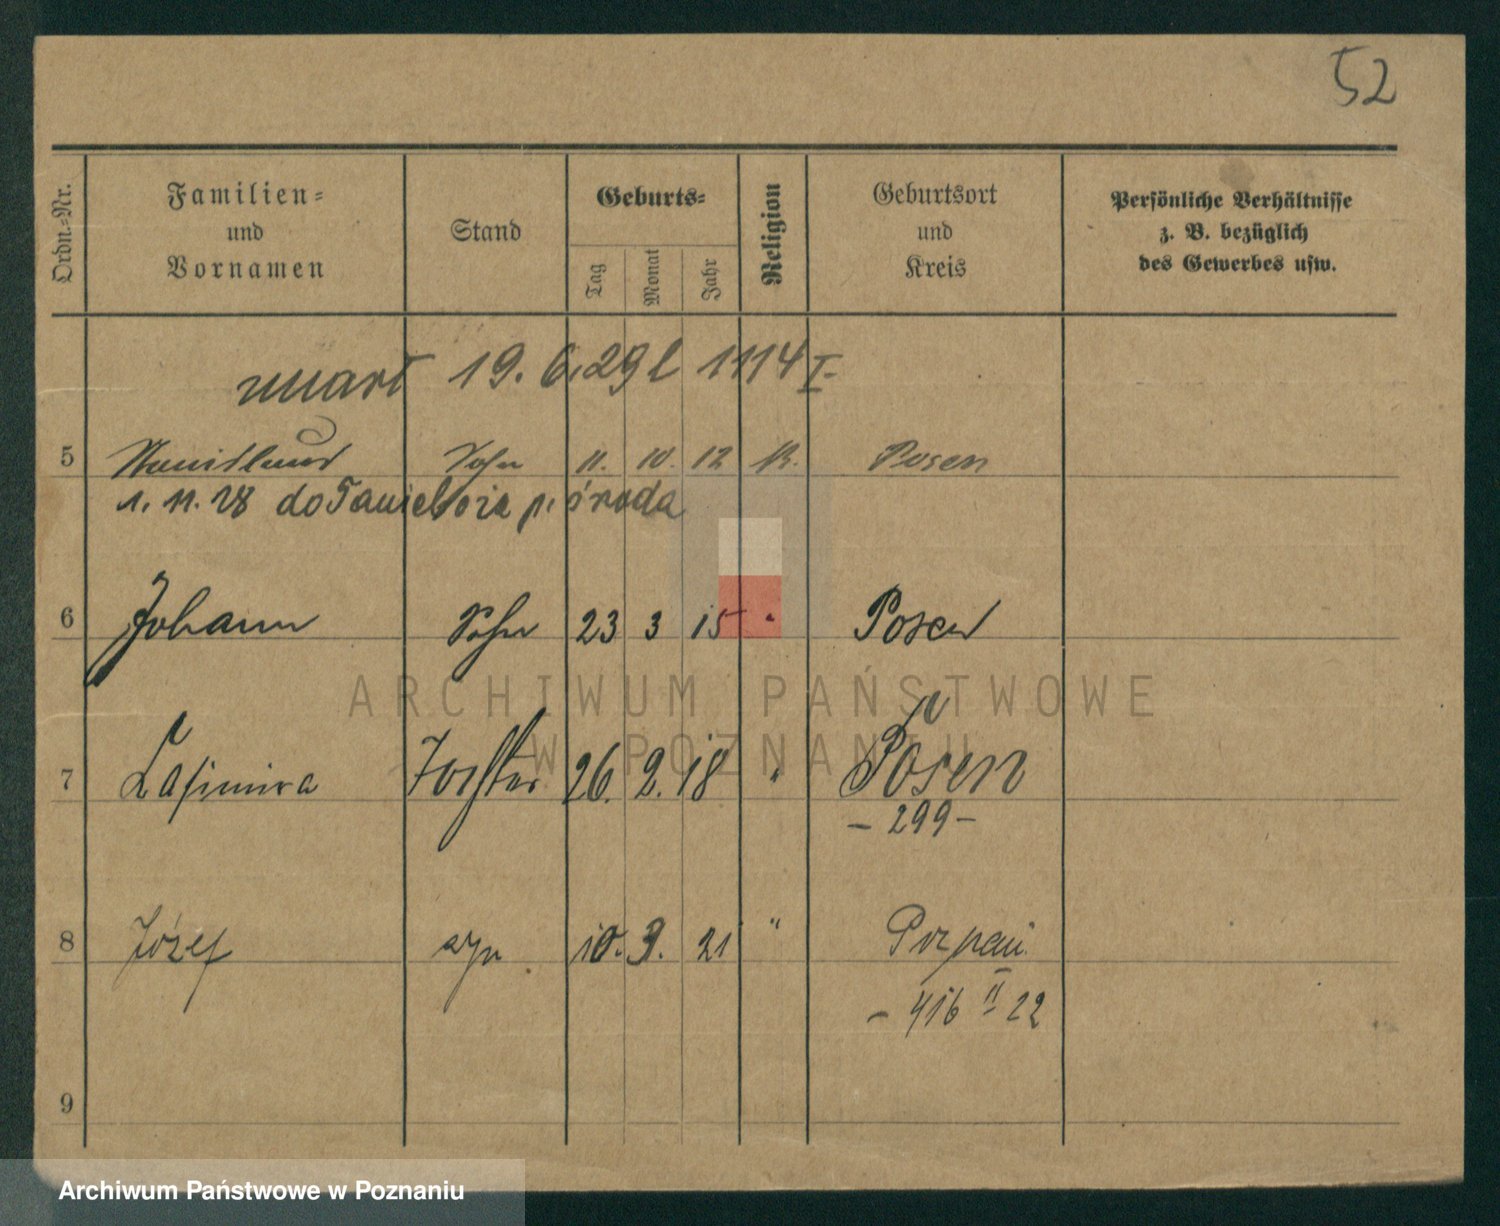 52
Ordn.=Nr.
Familien=
und
Vornamen
Stand
Geburts=
Tag
Monat
Jahr
Religion
Geburtsort
und
Kreis
Persönliche Verhältnisse
z. B. bezüglich
des Gewerbes usw.
19. 6. 29 1114 I
5 Sohn 11. 10. 12 K. Posen
1. 11. 28 do p. Środa
6 Johann Sohn 23 3 15 " Posen
7 Kasimira Tochter 26. 2. 18 " Posen
- 299 -
8 Józef syn 10. 3. 21 " Poznań
- 416 II 22
9
ARCHIWUM PAŃSTWOWE
W POZNANIU
Archiwum Państwowe w Poznaniu